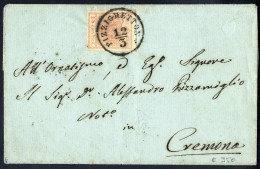 PIZZIGHETTONE
12/3
All' Ornatissimo, ed Egl. Signore
Il Sigr. Dr. Alessandro Pizzamiglio
Noto
in
Cremona